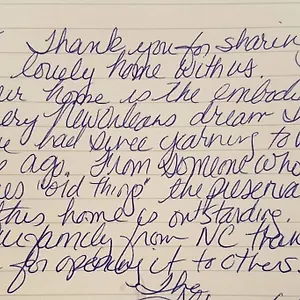 Thank you for sharing
lovely home with us.
ur home is the embodi
ery New Orleans dream I
e had since yearning to
s ago. From someone who
es "old things" the preserva
this home is outstanding.
family from NC than
for opening it to others.
The